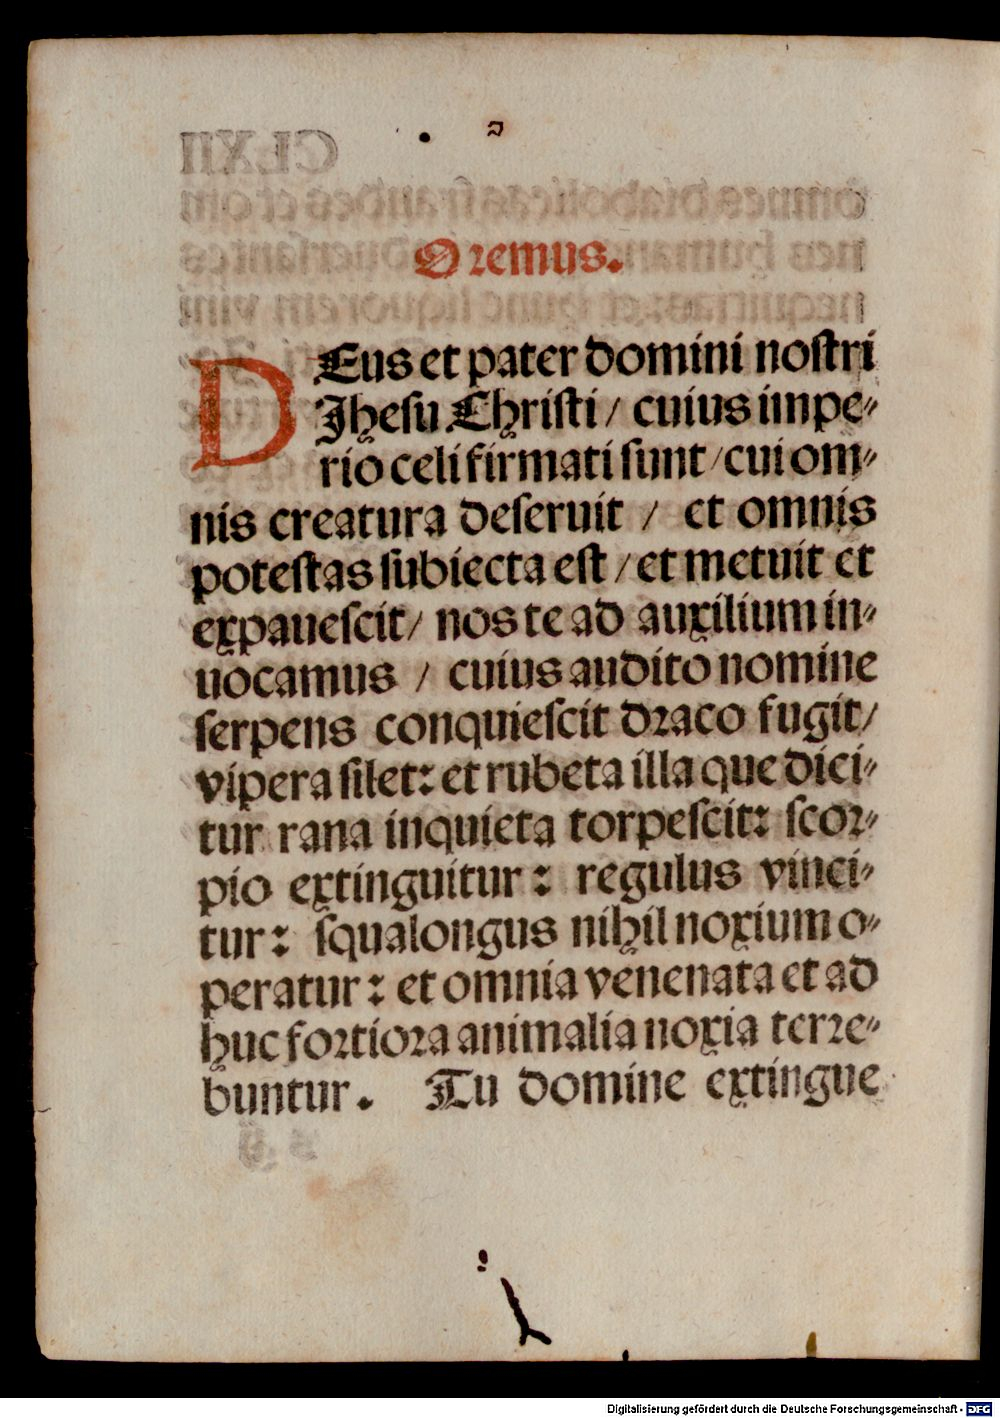 Oremus.
DEus et pater domini noſtri
Jheſu Chriſti / cuius impe⸗
rio celi firmati ſunt / cui om⸗
nis creatura deſeruit / et omnis
poteſtas ſubiecta eſt / et metuit et
expaueſcit / nos te ad auxilium in⸗
uocamus / cuius audito nomine
ſerpens conquieſcit draco fugit /
vipera ſilet: et rubeta illa que dici⸗
tur rana inquieta torpeſcit: ſcor⸗
pio extinguitur : regulus vinci⸗
tur : ſqualongus nihil noxium o⸗
peratur : et omnia venenata et ad
huc fortiora animalia noxia terre⸗
buntur. Tu domine extingue
Digitalisierung gefördert durch die Deutsche Forschungsgemeinschaft - DFG